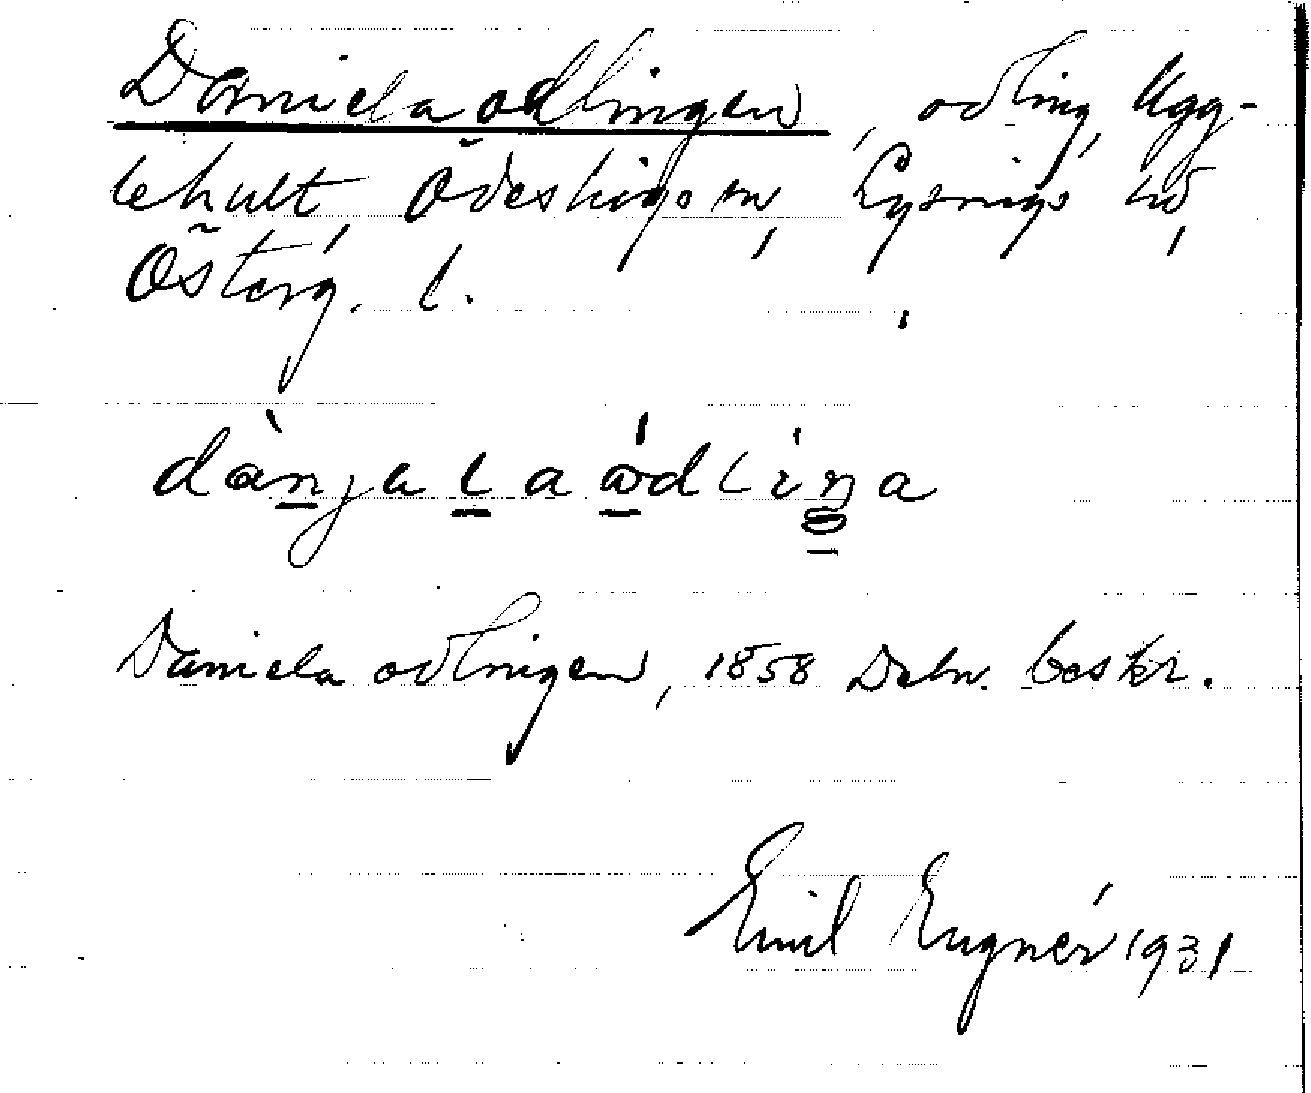 Danielaodlingen, odling, Ugg-
lehult, Ödeshögs sn, Lysings hd,
Österg. l.
dànjalaódlíŋa
Daniela odlingen, 1858 Deln. beskr.
Emil Eugnér 1931